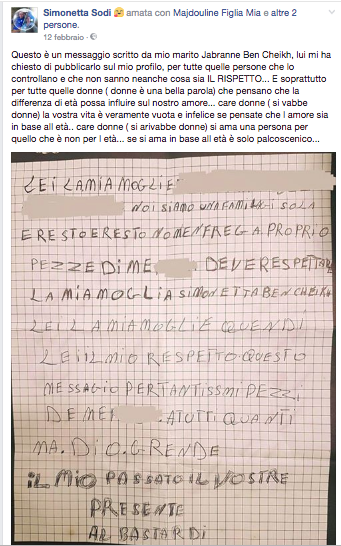 Simonetta Sodi amata con Majdouline Figlia Mia e altre 2
persone.
12 febbraio
Questo è un messaggio scritto da mio marito Jabranne Ben Cheikh, lui mi ha
chiesto di pubblicarlo sul mio profilo, per tutte quelle persone che lo
controllano e che non sanno neanche cosa sia IL RISPETTO... E soprattutto
per tutte quelle donne ( donne è una bella parola) che pensano che la
differenza di età possa influire sul nostro amore... care donne ( si vabbe
donne) la vostra vita è veramente vuota e infelice se pensate che l amore sia
in base all età.. care donne ( si arivabbe donne) si ama una persona per
quello che è non per l età... se si ama in base all età è solo palcoscenico...
LEI LA MIA MOGLIE
NOI SIAMO UNA FAMILI SOLA
E RESTO E RESTO NOMENFREGA PROPRIO
PEZZE DI ME DEVE RESPETTO
LA MIA MOGLIA SIMONETTA BEN CHEIKH
LEI LA MIA MOGLIE QUENDI
LEI IL MIO RESPETTO QUESTO
MESSAGIO PER TANTISSMI PEZZI
DE ME A TUTTI QUANTI
MA. DI O.G RENDE
IL MIO PASSATO IL VOSTRE
PRESENTE
AL BASTARDI